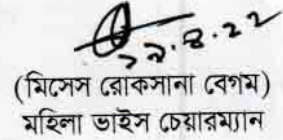 ২৯.৪.২২
(মিসেস রোকসানা বেগম)
মহিলা ভাইস চেয়ারম্যান